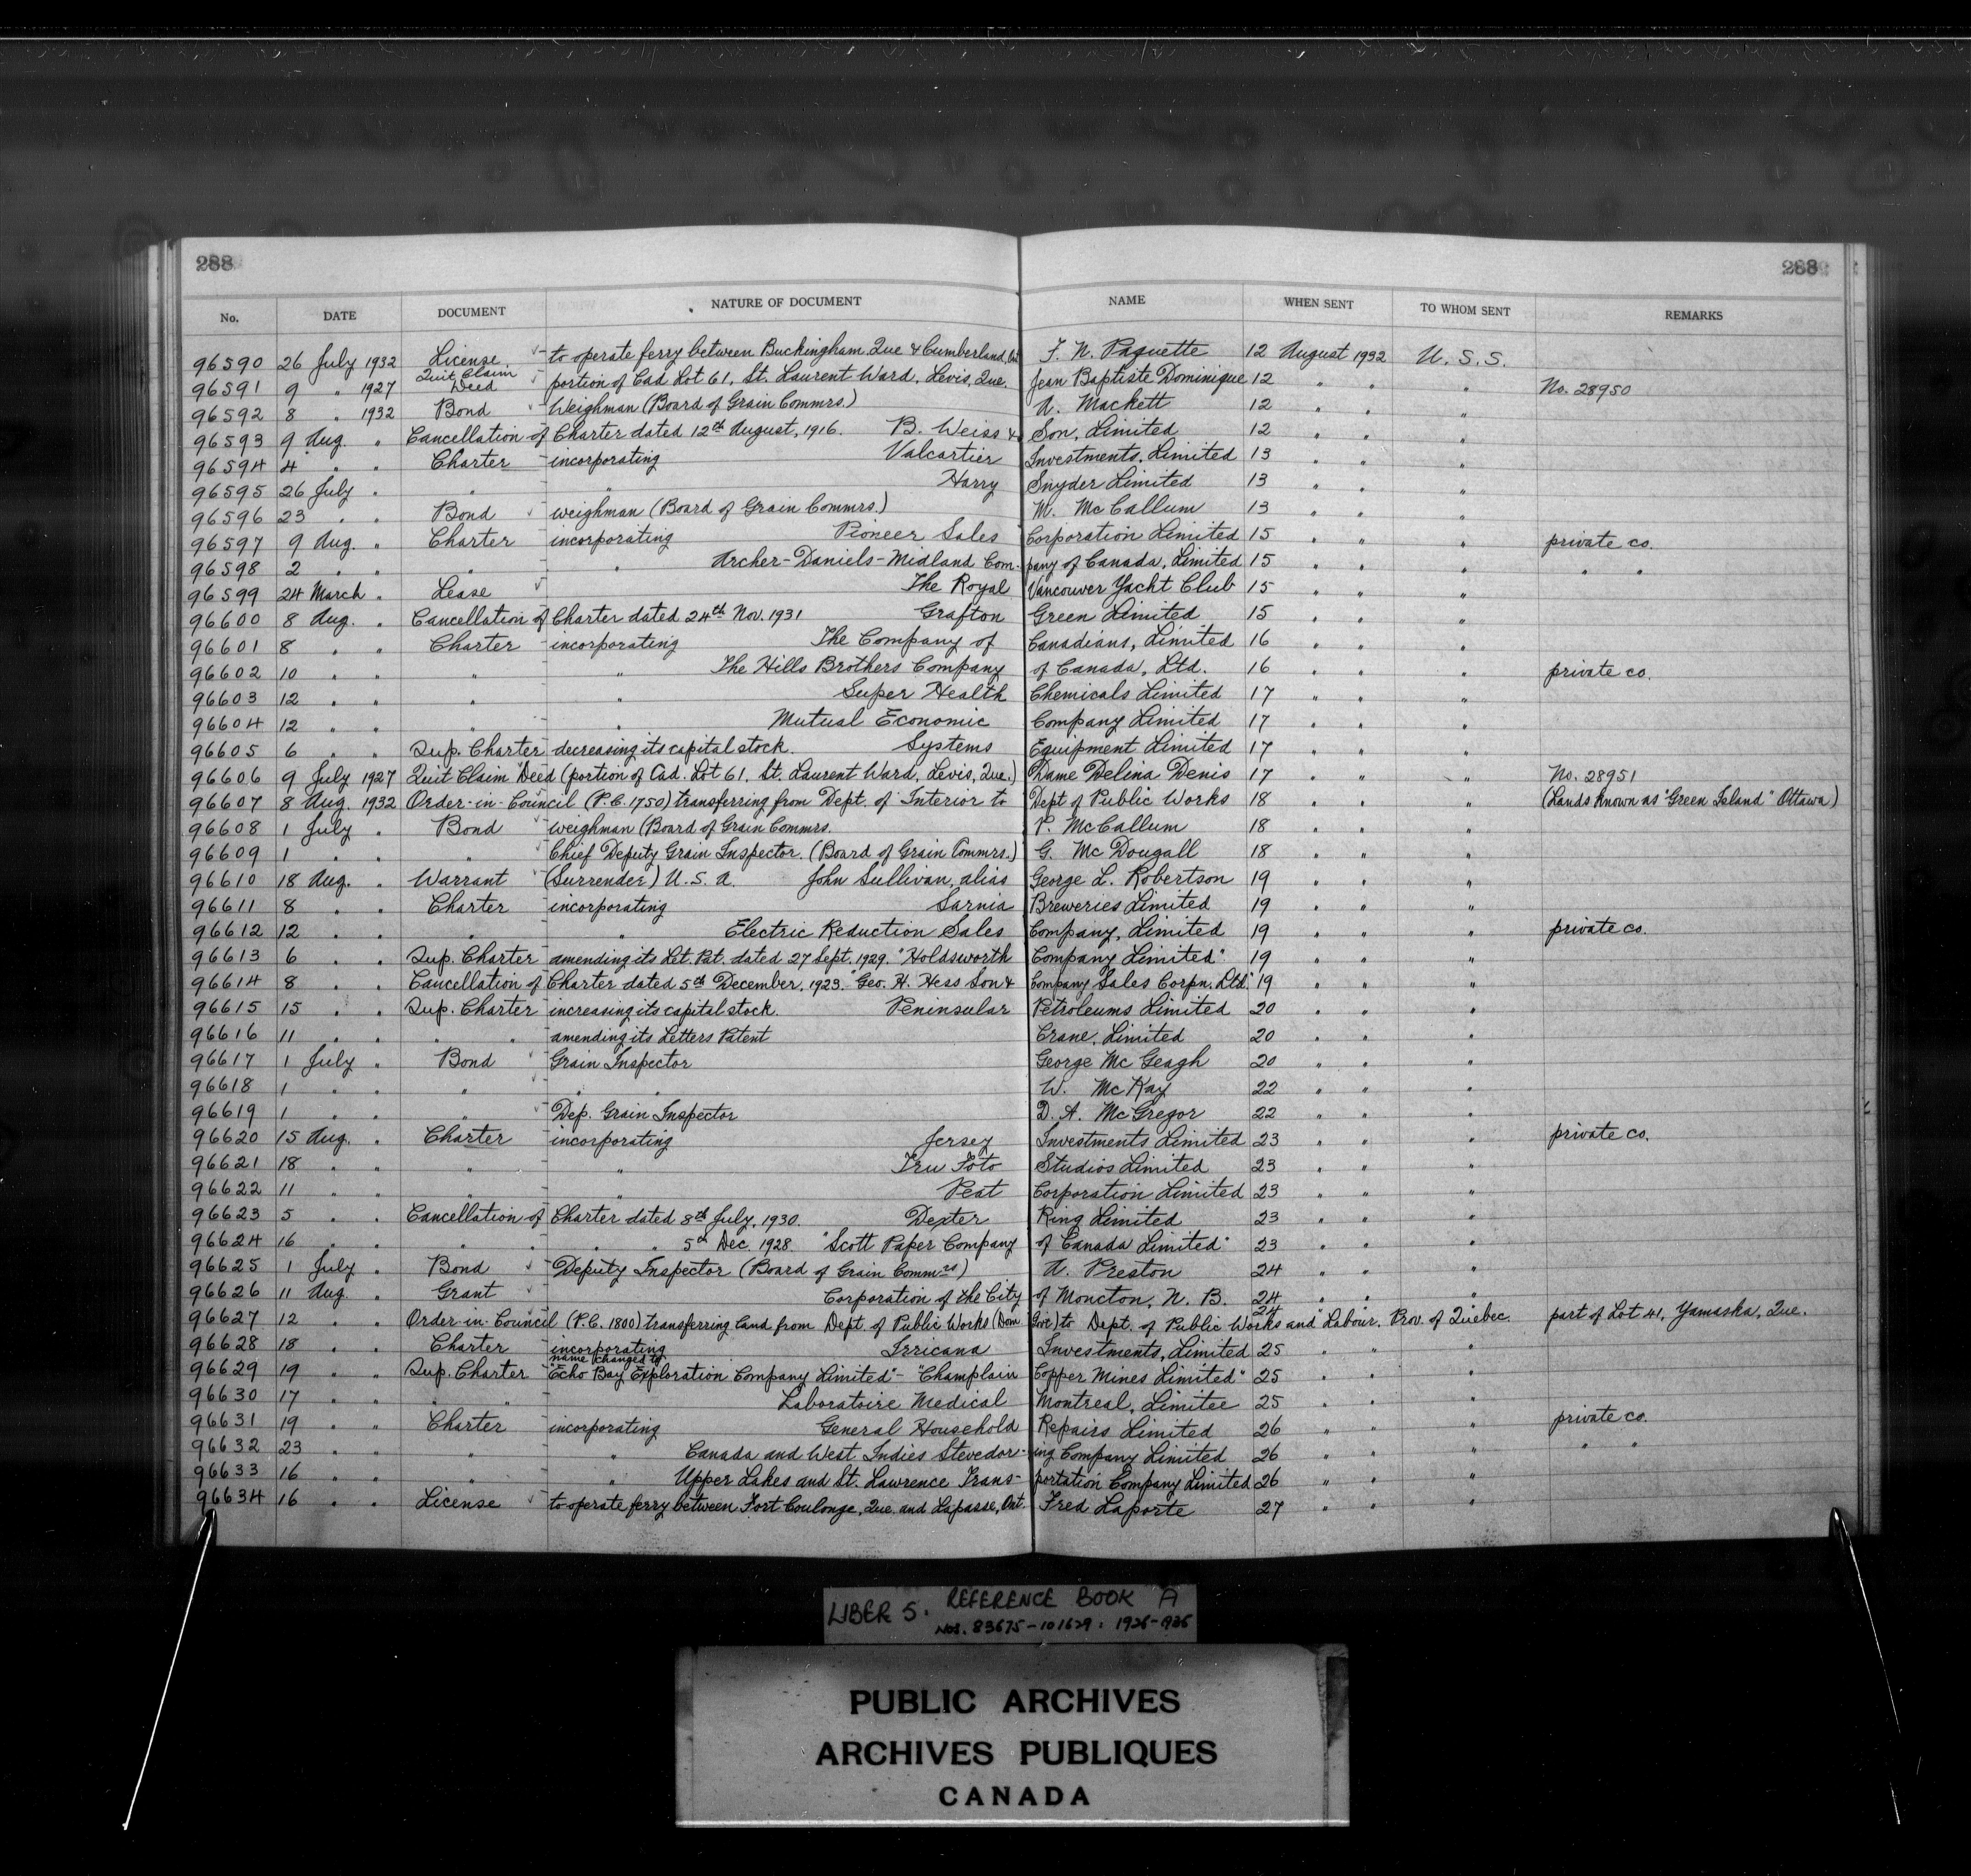 288 288
No. DATE DOCUMENT NATURE OF DOCUMENT NAME WHEN SENT TO WHOM SENT REMARKS
96590 26 July 1932 License to operate ferry between Buckingham, Que & Cumberland, Ont F. N. Paquette 12 August 1932 U. S. S.
96591 9 " 1927 Quit Claim Deed portion of Cad Lot 61, St. Laurent Ward, Levis, Que. Jean Baptiste Dominique 12 " " " No. 28950
96592 8 " 1932 Bond Weighman (Board of Grain Commrs.) A. Mackett 12 " " "
96593 9 Aug. " Cancellation of Charter dated 12th August, 1916. B. Weiss & Son, Limited 12 " " "
96594 4 " " Charter incorporating Valcartier Investments, Limited 13 " " "
96595 26 July " " " Harry Snyder Limited 13 " " "
96596 23 " " Bond weighman (Board of Grain Commrs.) M. McCallum 13 " " "
96597 9 Aug. " Charter incorporating Pioneer Sales Corporation Limited 15 " " " private co.
96598 2 " " " " Archer-Daniels-Midland Company of Canada, Limited 15 " " " " "
96599 24 March " Lease The Royal Vancouver Yacht Club 15 " " "
96600 8 Aug. " Cancellation of Charter dated 24th Nov. 1931 Grafton Green Limited 15 " " "
96601 8 " " Charter incorporating The Company of Canadians, Limited 16 " " "
96602 10 " " " " The Hills Brothers Company of Canada, Ltd. 16 " " " private co.
96603 12 " " " " Super Health Chemicals Limited 17 " " "
96604 12 " " " " Mutual Economic Company Limited 17 " " "
96605 6 " " Sup. Charter decreasing its capital stock. Systems Equipment Limited 17 " " "
96606 9 July 1927 Quit Claim Deed (portion of Cad. Lot 61, St. Laurent Ward, Levis, Que.) Dame Delina Denis 17 " " " No. 28951
96607 8 Aug. 1932 Order-in-Council (P.C. 1750) transferring from Dept. of Interior to Dept of Public Works 18 " " " (Lands known as "Green Island" Ottawa)
96608 1 July " Bond weighman (Board of Grain Commrs. P. McCallum 18 " " "
96609 1 " " " Chief Deputy Grain Inspector. (Board of Grain Commrs.) G. McDougall 18 " " "
96610 18 Aug. " Warrant (Surrender) U. S. A. John Sullivan, alias George L. Robertson 19 " " "
96611 8 " " Charter incorporating Sarnia Breweries Limited 19 " " "
96612 12 " " " " Electric Reduction Sales Company, Limited 19 " " " private co.
96613 6 " " Sup. Charter amending its Let. Pat. dated 27 Sept. 1929. "Holdsworth Company Limited" 19 " " "
96614 8 " " Cancellation of Charter dated 5th December, 1923. "Geo. H. Hess Son & Company Sales Corpn. Ltd." 19 " " "
96615 15 " " Sup. Charter increasing its capital stock. Peninsular Petroleums Limited 20 " " "
96616 11 " " " " amending its Letters Patent Crane, Limited 20 " " "
96617 1 July " Bond Grain Inspector George McGeagh 20 " " "
96618 1 " " " " " W. McKay 22 " " "
96619 1 " " " Dep. Grain Inspector D. A. McGregor 22 " " "
96620 15 Aug. " Charter incorporating Jersey Investments Limited 23 " " " private co.
96621 18 " " " " Tru Foto Studios Limited 23 " " "
96622 11 " " " " Peat Corporation Limited 23 " " "
96623 5 " " Cancellation of Charter dated 8th July, 1930. Dexter Ring Limited 23 " " "
96624 16 " " " " " " 5th Dec. 1928. "Scott Paper Company of Canada Limited" 23 " " "
96625 1 July " Bond Deputy Inspector (Board of Grain Commrs) A. Preston 24 " " "
96626 11 Aug. " Grant Corporation of the City of Moncton, N. B. 24 " " "
96627 12 " " Order-in-Council (P.C. 1800) transferring land from Dept. of Public Works (Dom Govt) to Dept. of Public Works and Labour, Prov. of Quebec. 24 part of Lot 41, Yamaska, Que.
96628 18 " " Charter incorporating Irricana Investments, Limited 25 " " "
96629 19 " " Sup. Charter name changed to "Echo Bay Exploration Company Limited" - "Champlain Copper Mines Limited" 25 " " "
96630 17 " " " " Laboratoire Medical Montreal, Limitee 25 " " "
96631 19 " " Charter incorporating General Household Repairs Limited 26 " " " private co.
96632 23 " " " " Canada and West Indies Stevedoring Company Limited 26 " " " " "
96633 16 " " " " Upper Lakes and St. Lawrence Transportation Company Limited 26 " " "
96634 16 " " License to operate ferry between Fort Coulonge, Que. and Lapasse, Ont. Fred Laporte 27 " " "
LIBER 5. REFERENCE BOOK A
Nos. 83675-101629: 1926-1936
PUBLIC ARCHIVES
ARCHIVES PUBLIQUES
CANADA